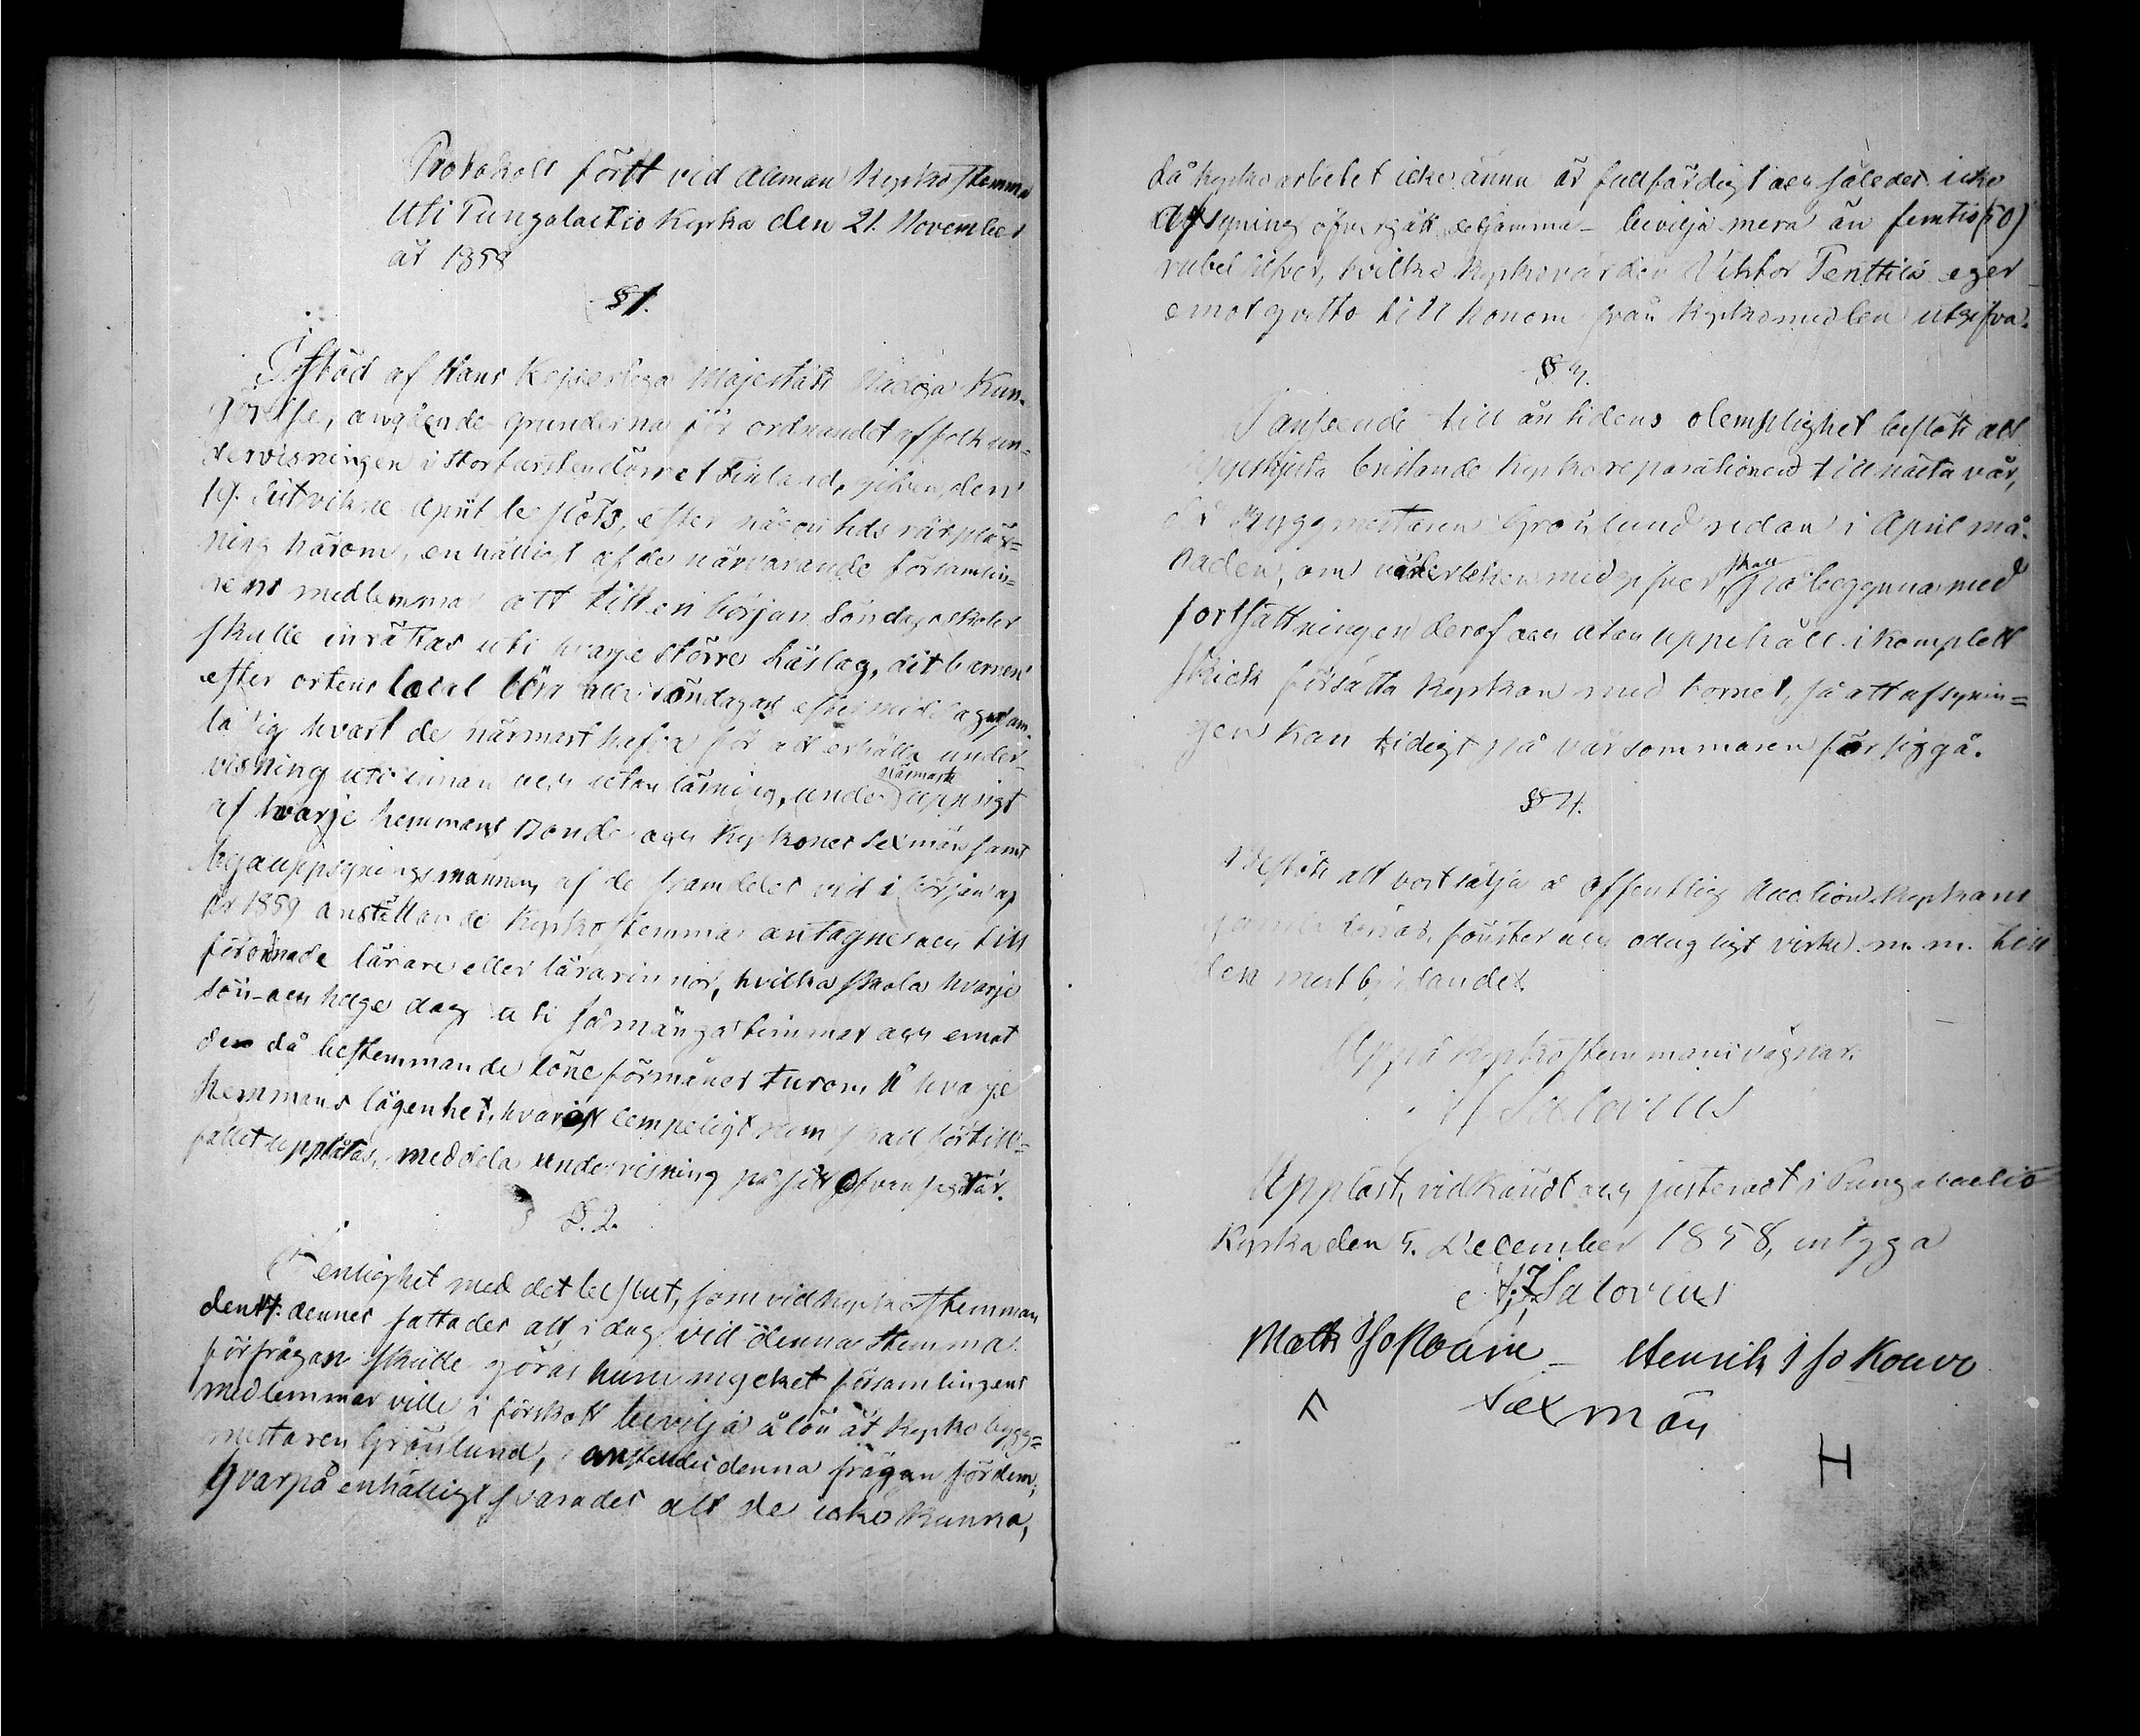 Protokoll fördt vid Allman Kyrkostemma
Uti Pungalaitio Kyrka den 21. November
år 1858
§ 1.
I stöd af Hans Kejserliga Majestäts Nådiga Kun-
görelse, angående grunderna för ordnandet af folkun-
dervisningen i Storfurstendömet Finland, gifven den
19. sistvikne April beslöts, efter någon tids rådpläg=
ning härom, enhälligt af de närvarande församlin=
gens medlemmar att till en början söndagsskolor
skulle inrättas uti hvarje större håslag, dit barnen
efter ortens local böra alla söndagar eftermiddagar sam-
la sig hvart de närmast hafva för att erhålla under-
visning uti innan och utan läsning, under närmaste uppsigt
af hvarje hemmans Bonde och Kyrkones Sexmän samt
byauppsyningsmännen, af de framdeles vid i början af
år 1859 anställande Kyrkostemma antagnes och till
förordnade lärare eller lärarinnor, hvilka skola hvarje
sön- och helge dag uti så många timmar och emot
den då bestemmande löneförmåner turom å hvarje
hemmans lägenhet, hvarest lempeligt rum skall för till=
fället upplåtas, meddela undervisning på sätt ofvan sagdt är.
§. 2.
I enlighet med det beslut, som vid Kyrkostemman
den 14. dennes fattades att i dag vid denna stemma
förfrågan skulle göras huru mycket församlingens
medlemmar ville i förskott bevilja å lön åt Kyrkobygg=
mestaren Grönlund, anstendes denna frågan för dem,
hvarpå enhälligt svarades att de icke kunna,
då kyrkoarbetet icke ännu är fullfärdigt och således icke
afsyning öfvergått detsamma – bevilja mera än femtio (50)
rubel silfver, hvilka kyrkovärden Viktor Penttilä eger
emot qvitto till honom från kyrkomedlen utgifva.
§ 3.
I anseende till årstidens olemplighet beslöts att
uppskjuta bristande kyrkoreparationen till nästa vår,
då Byggmestaren Grönlund redan i April må-
naden, om väderleken medgifver, skall påbegynna med
fortsättningen deraf och utan uppehåll i komplett
skick försätta kyrkan med tornet, så att afsynin=
gen kan tidigt på vårsommaren försiggå.
§ 4.
Beslöts att bortsälja å offentlig Auction Kyrkans
gamla dörrar, fönster och odugligt virke m. m. till
den mest bjudande.
Uppå Kyrkostemmans vägnar:
A J Salovius
Uppläst, vidkändt och justeradt i Pungalaitio
Kyrka den 5. December 1858, intyga
A J Salovius
Matts Iso – Henrik Iso Kouvo
Sexmän
H